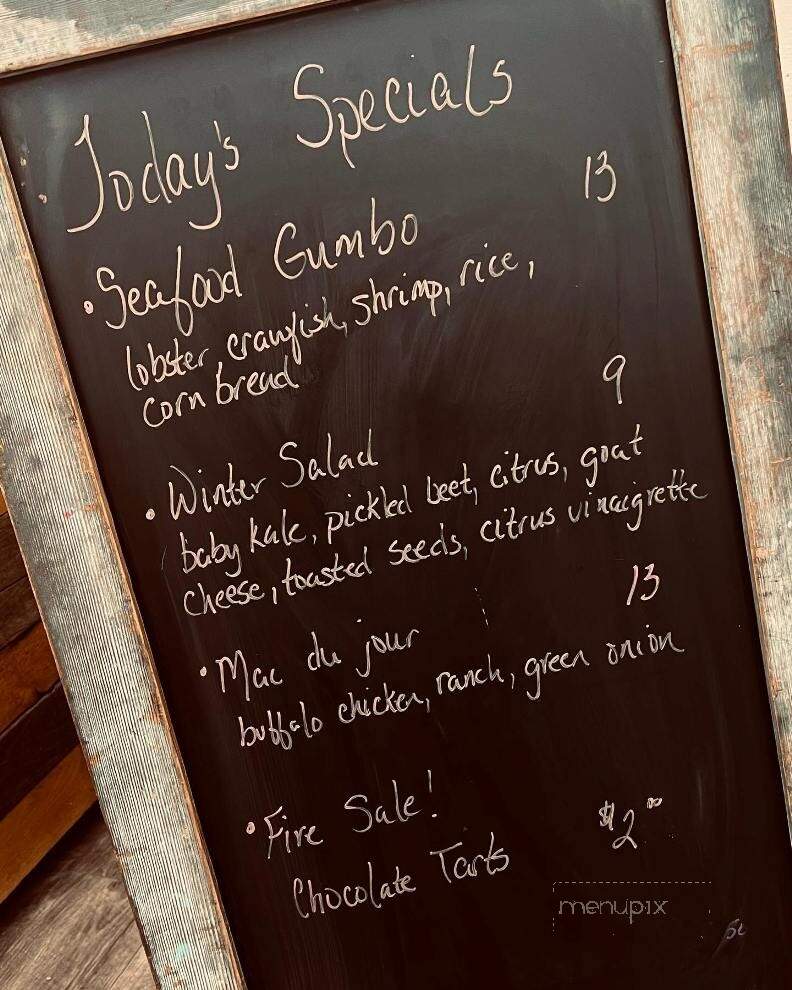 Today's Specials
• Seafood Gumbo 13
lobster, crawfish, shrimp, rice,
corn bread
• Winter Salad 9
baby kale, pickled beet, citrus, goat
cheese, toasted seeds, citrus vinaigrette
• Mac du jour 13
buffalo chicken, ranch, green onion
• Fire Sale!
Chocolate Tarts $2.00
menupix